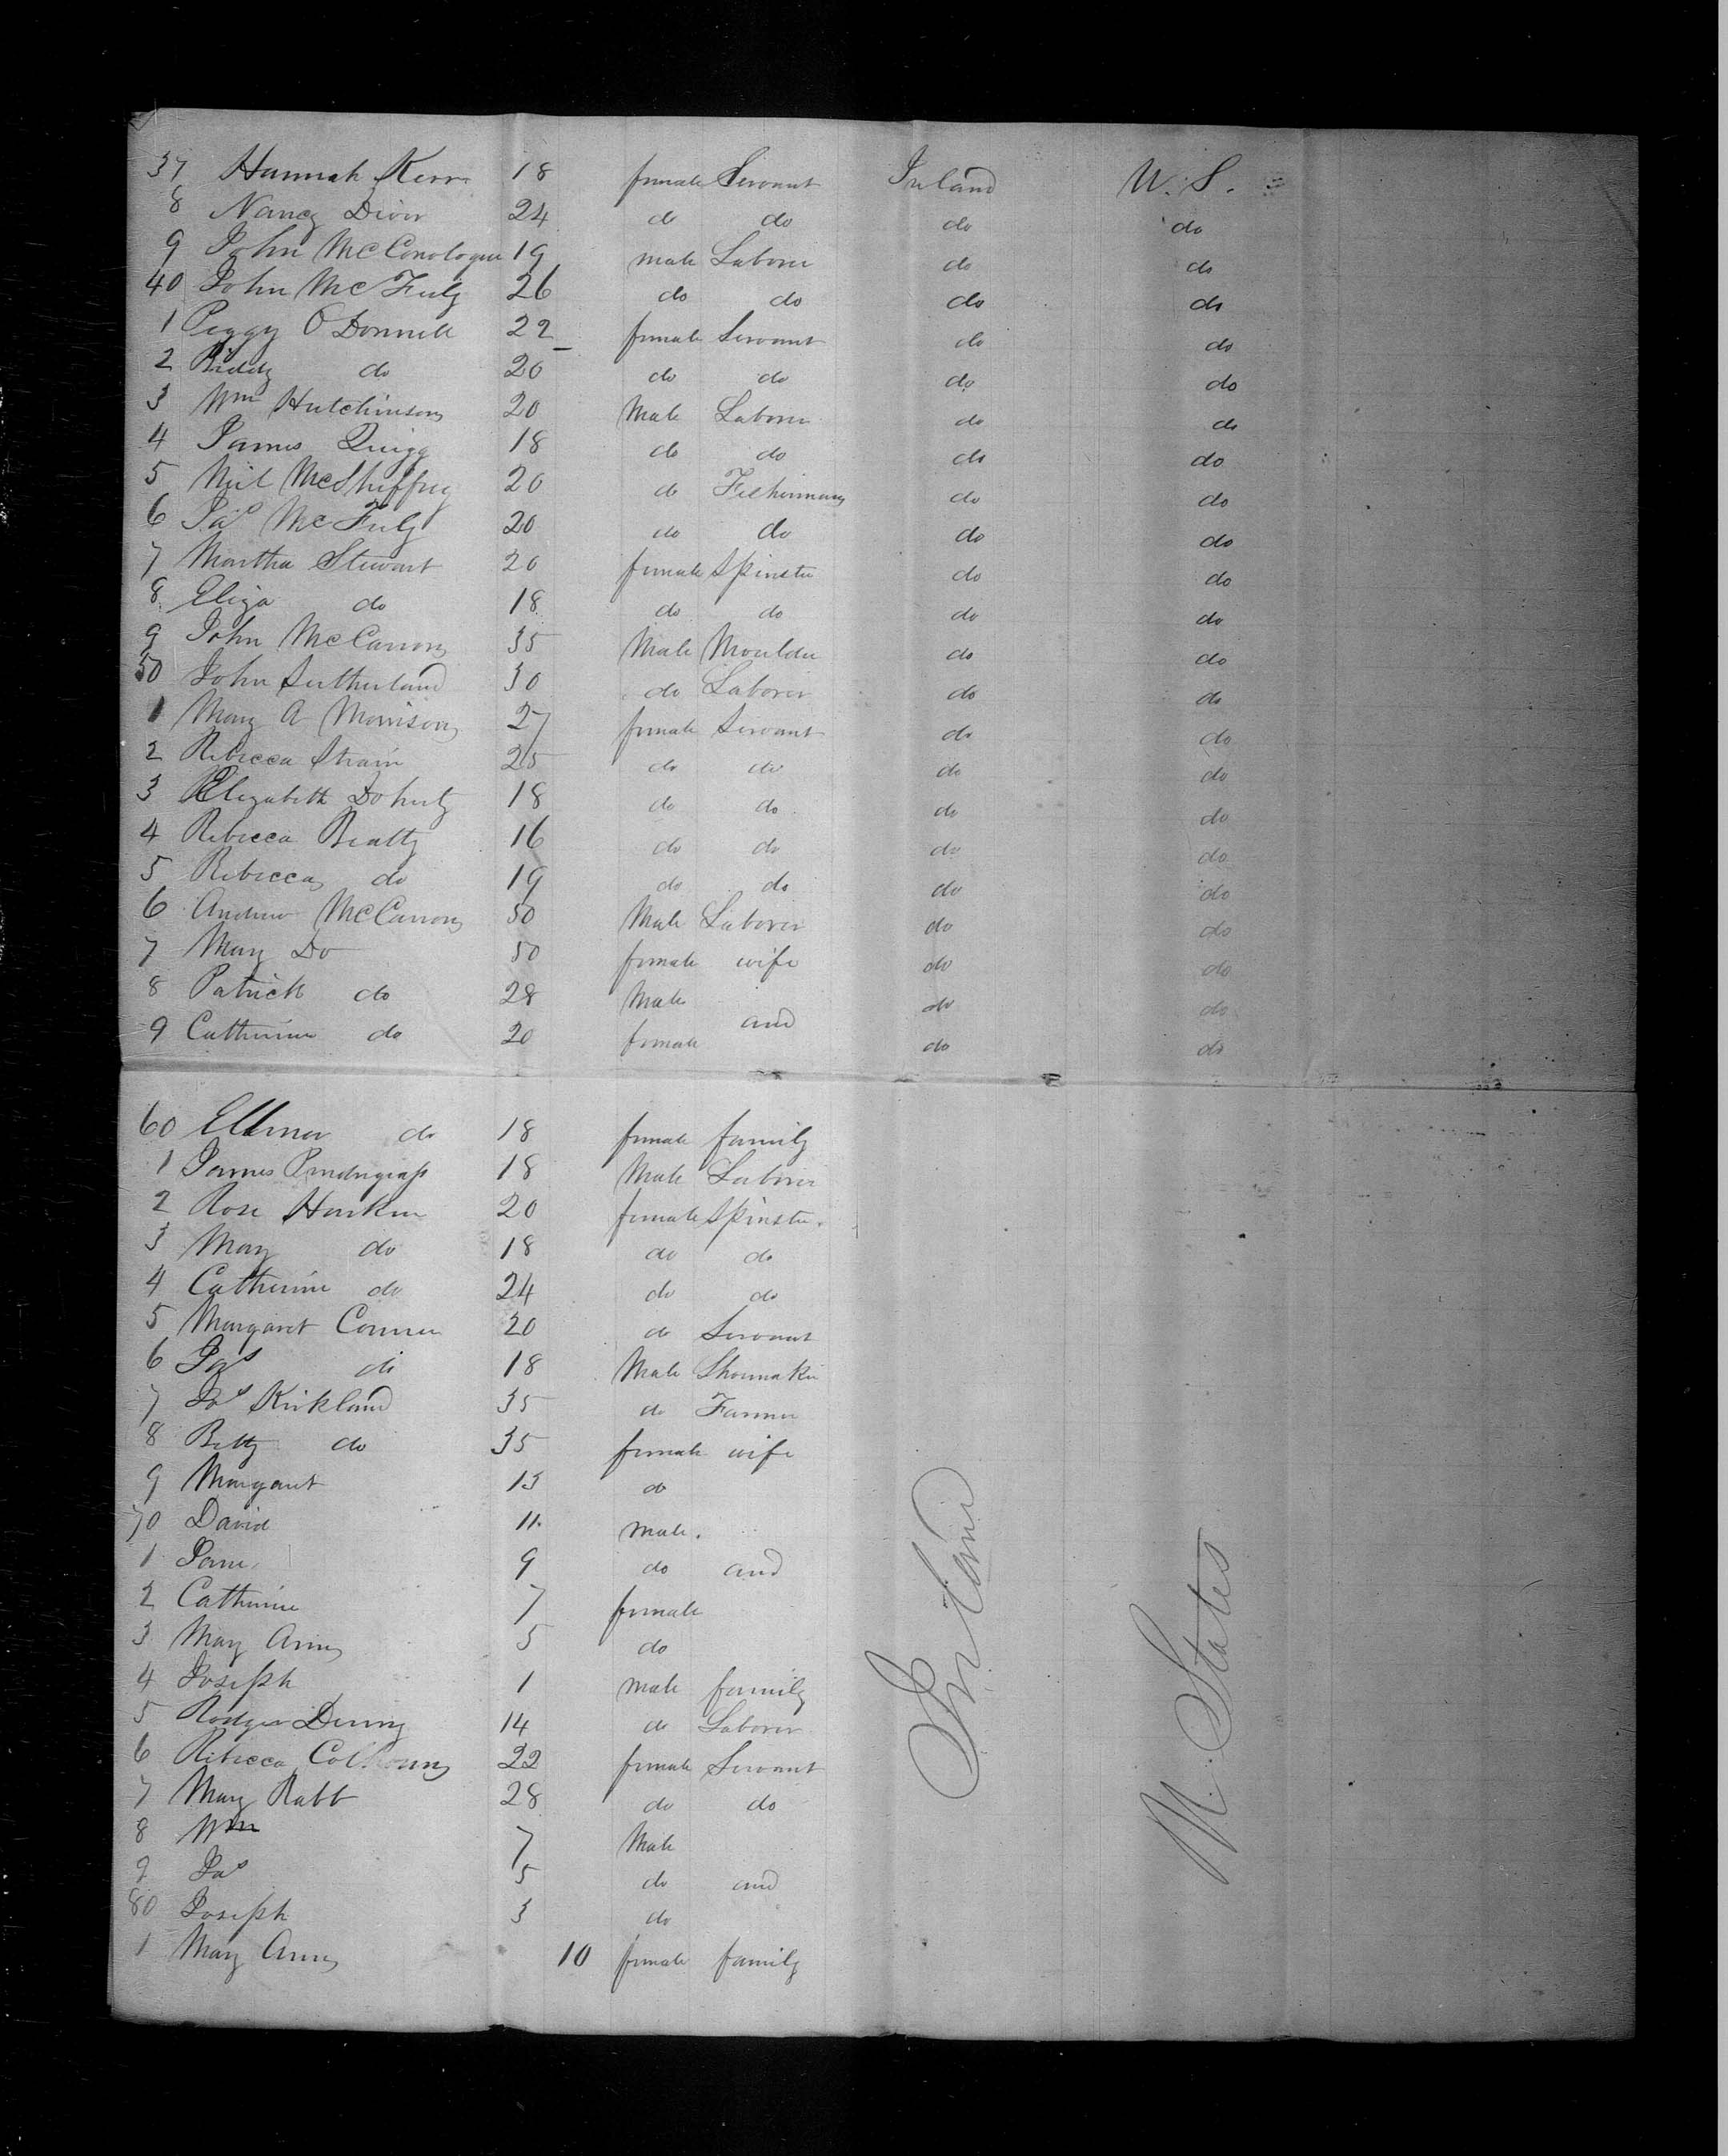 37 Hannah Kerr 18 female Servant Ireland U.S.
8 Nancy Diver 24 do do do do
9 John McConologue 19 male Laborer do do
40 John McFeely 26 do do do do
1 Peggy O'Donnell 22 female Servant do do
2 Biddy do 20 do do do do
3 Wm Hutchinson 20 Male Laborer do do
4 James Quigg 18 do do do do
5 Neil McSheffrey 20 do Fisherman do do
6 Jas McFeely 20 do do do do
7 Martha Stewart 20 female Spinster do do
8 Eliza do 18 do do do do
9 John McCarron 35 Male Moulder do do
50 John Sutherland 30 do Laborer do do
1 Mary A Morrison 27 female Servant do do
2 Rebecca Strain 25 do do do do
3 Elizabeth Doherty 18 do do do do
4 Rebecca Beatty 16 do do do do
5 Rebecca do 19 do do do do
6 Andrew McCarron 50 Male Laborer do do
7 Mary Do 50 female wife do do
8 Patrick do 28 Male do do
and
9 Catherine do 20 female do do
60 Ellenor do 18 female family
1 James Pendergrass 18 Male Laborer
2 Rose Harkin 20 female Spinster
3 Mary do 18 do do
4 Catherine do 24 do do
5 Margaret Conner 20 do Servant
6 Jas do 18 Male Shoemaker
7 Jas Kirkland 35 do Farmer
8 Betty do 35 female wife
9 Margaret 13 do
70 David 11 male
1 Jame 9 do and
2 Catherine 7 female
3 Mary Ann 5 do
4 Joseph 1 male family
5 Rodger Deeny 14 do Laborer
6 Rebecca Colhoun 22 female Servant
7 Mary Rabb 28 do do
8 Wm 7 Male
9 Jas 5 do and
80 Joseph 3 do
1 Mary Ann 10 female family
Ireland
U. States